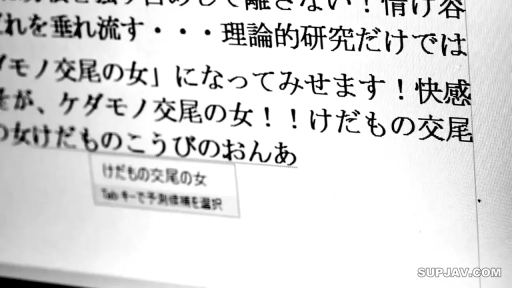 を独り占めして離さない！情け容
れを垂れ流す・・・理論的研究だけでは
ダモノ交尾の女」になってみせます！快感
が、ケダモノ交尾の女！！けだもの交尾
の女けだものこうびのおんあ
けだもの交尾の女
Tabキーで予測候補を選択
SUPJAV.COM